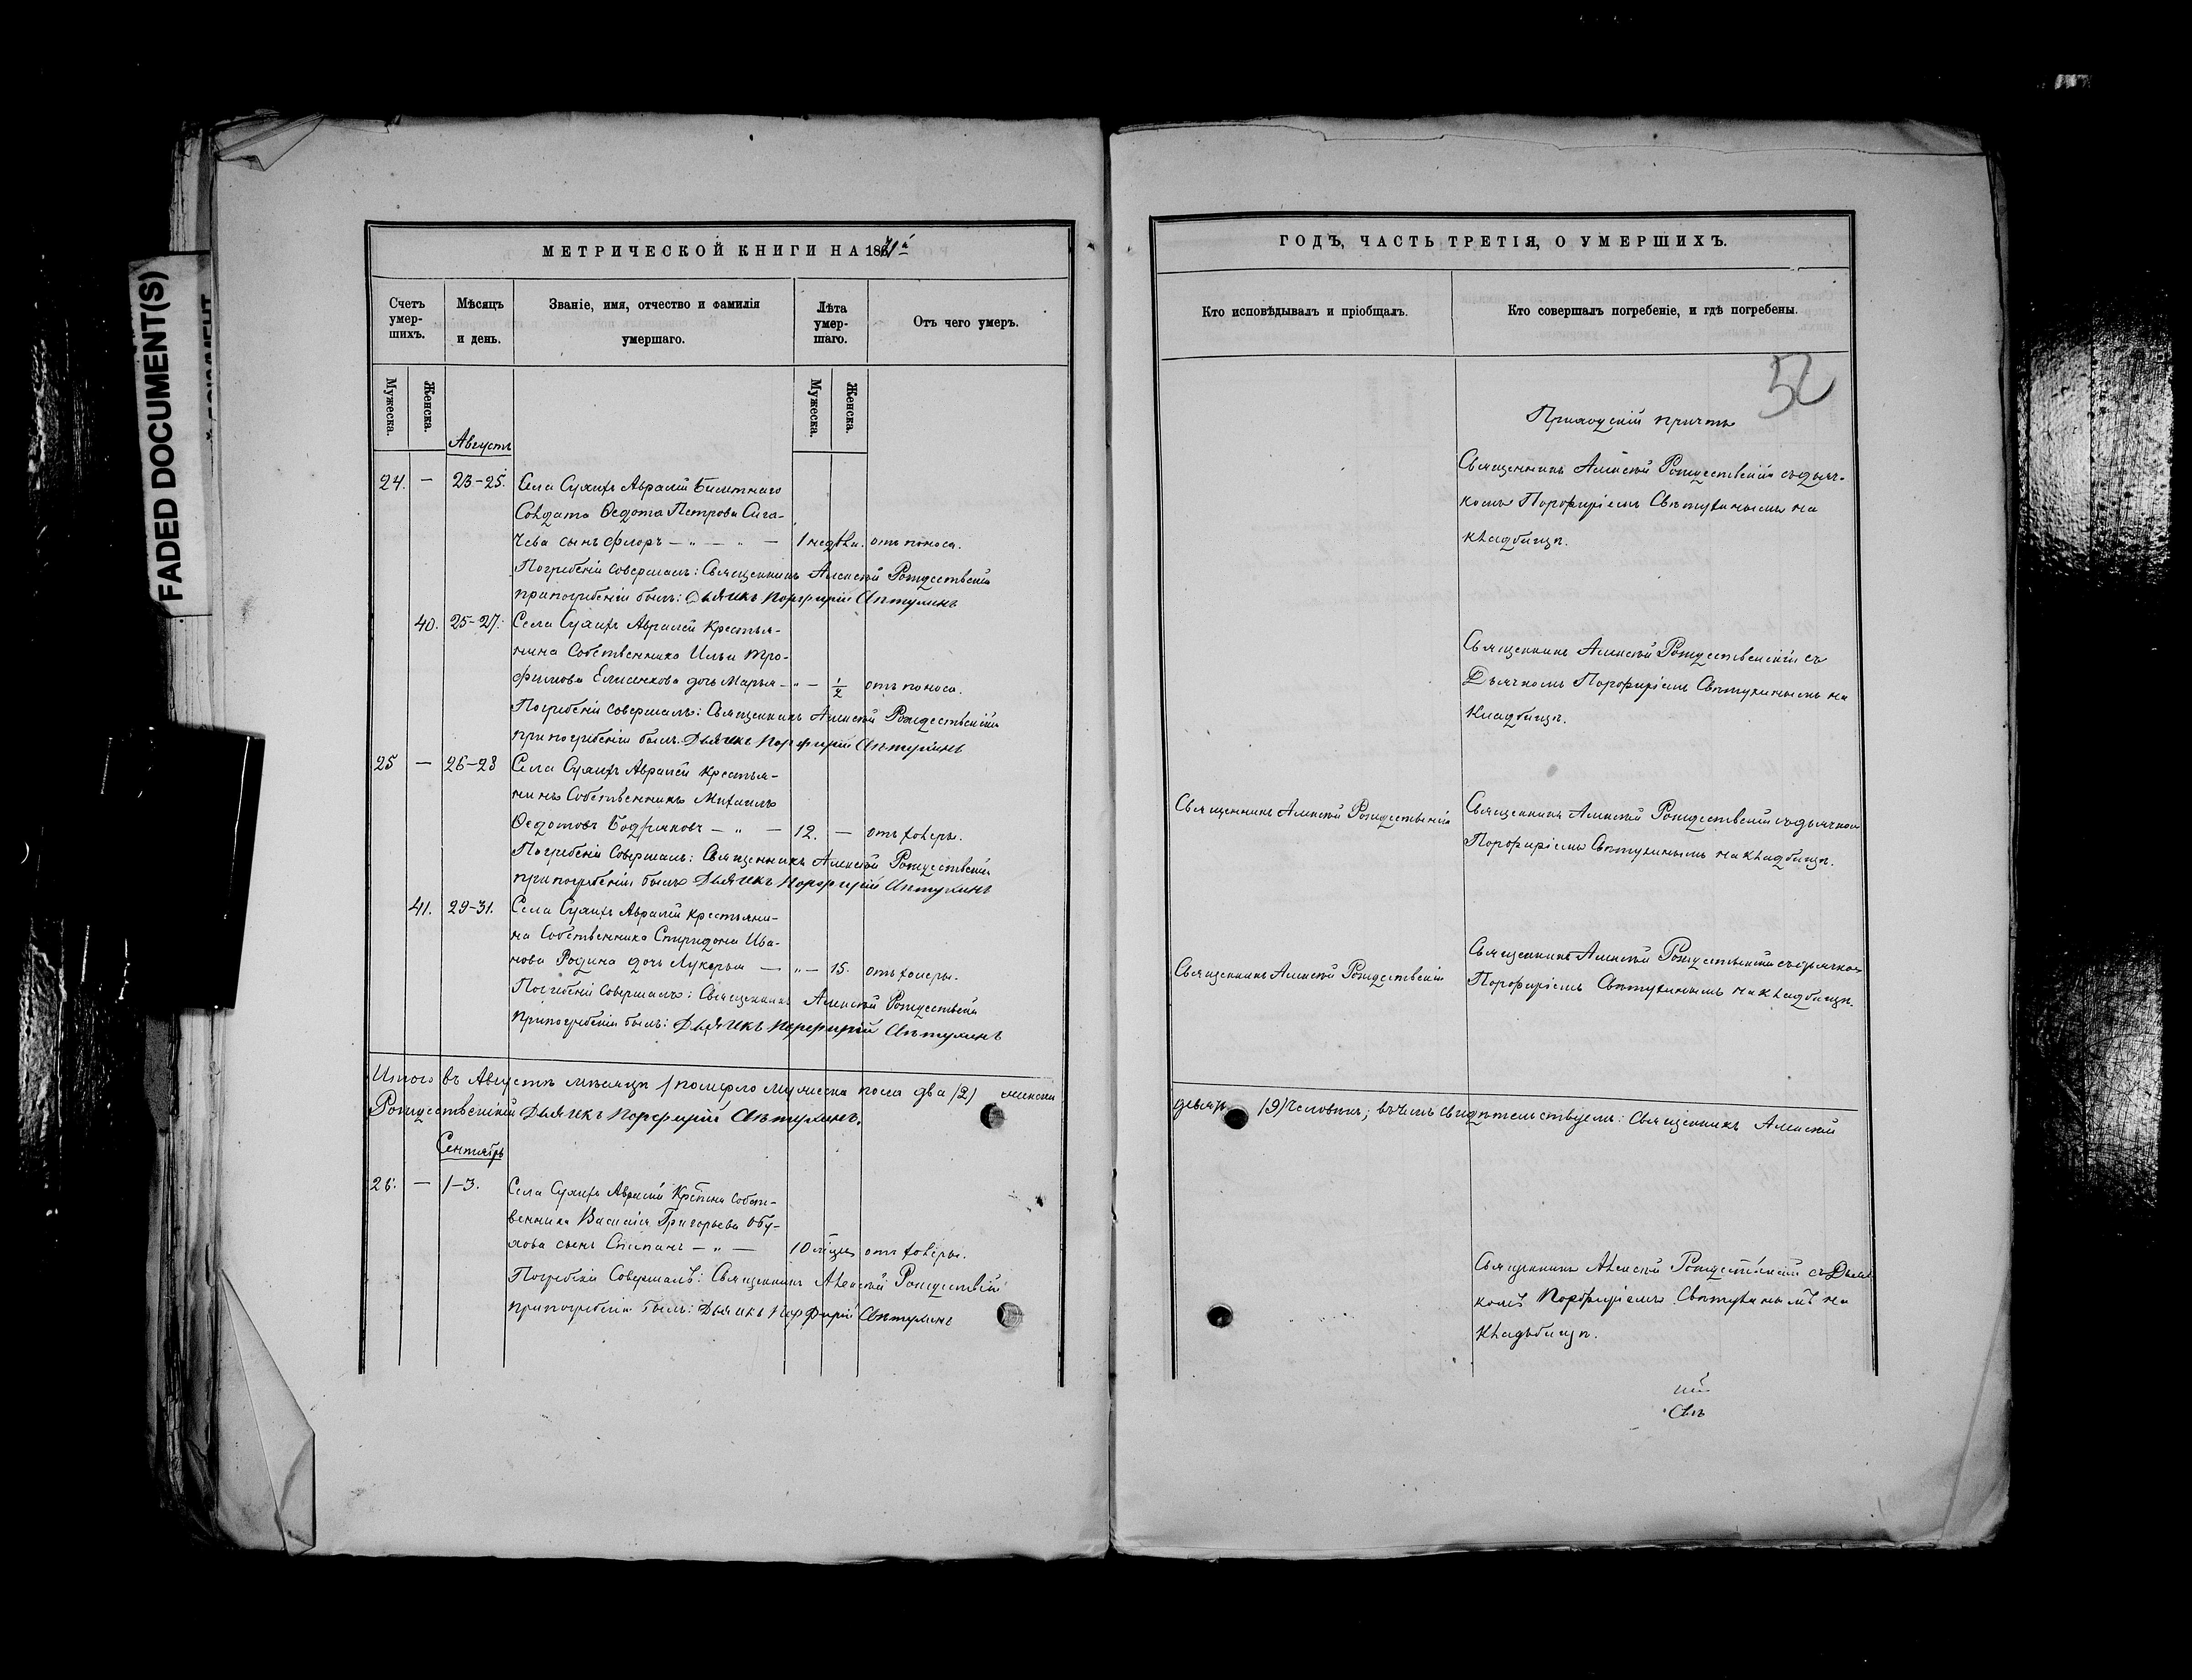 FADED DOCUMENT(S)
МЕТРИЧЕСКОЙ КНИГИ НА 1871й
Счетъ умер-шихъ.
Мѣсяцъ и день.
Званіе, имя, отчество и фамилія умершаго.
Лѣта умер-шаго.
Отъ чего умеръ.
Мужеска.
Женска.
Мужеска.
Женска.
Августъ
24. — 23-25. Села Авралей Билетнаго
Солдата Ѳедота Петрова Сига-
чева сынъ Флоръ — " — " — 1 недѣли. отъ поноса.
Погребеніе совершалъ: Священникъ Алексѣй Рождественскій
при погребеніи былъ: Дьячекъ Порфирій
40. 25-27. Села Авралей Крестья-
нина Собственника Ильи Тро-
фимова Елисенкова дочь Марья — " — 1/2 отъ поноса.
Погребеніе совершалъ: Священникъ Алексѣй Рождественскій
при погребеніи былъ: Дьячекъ Порфирій
25 — 26-28 Села Авралей Крестья-
нинъ Собственникъ Михаилъ
Ѳедотовъ Бодряковъ — " — 12. — отъ холеры.
Погребеніе Совершалъ: Священникъ Алексѣй Рождественскій
при погребеніи былъ Дьячекъ Порфирій
41. 29-31. Села Авралей Крестьяни-
на Собственника Спиридона Ива-
нова Родина дочь Лукерья — " — 15. отъ холеры.
Погребеніе Совершалъ: Священникъ Алексѣй Рождественскій
При погребеніи былъ: Дьячекъ Порфирій
Итого въ Августѣ мѣсяцѣ померло мужеска пола два /2/ женска
Рождественскій Дьячекъ Порфирій
Сентябрь
26. — 1-3. Села Авралей Кр-нина Собст-
венника Василія Григорьева Обу-
хова сынъ Степанъ — " — 10 мѣсяц отъ холеры.
Погребеніе Совершалъ: Священникъ Алексѣй
при погребеніи былъ: Дьячекъ Порфирій
ГОДЪ, ЧАСТЬ ТРЕТІЯ, О УМЕРШИХЪ.
Кто исповѣдывалъ и пріобщалъ.
Кто совершалъ погребеніе, и гдѣ погребены.
52
Приходскій причтъ
Священникъ Алексѣй Рождественскій съ дьяч-
комъ Порфиріемъ на
кладбищѣ.
Священникъ Алексѣй Рождественскій съ
Дьячкомъ Порфиріемъ на
Кладбищѣ.
Священникъ Алексѣй Рождественскій
Священникъ Алексѣй Рождественскій съ дьячкомъ
Порфиріемъ на кладбищѣ.
Священникъ Алексѣй Рождественскій
Священникъ Алексѣй Рождественскій съ дьячкомъ
Порфиріемъ на кладбищѣ.
девять /9/ Человѣкъ; въ чемъ свидѣтельствуемъ: Священникъ Алексѣй
Священникъ Алексѣй съ Дьяч
комъ Порфиріемъ на
Кладбищѣ.